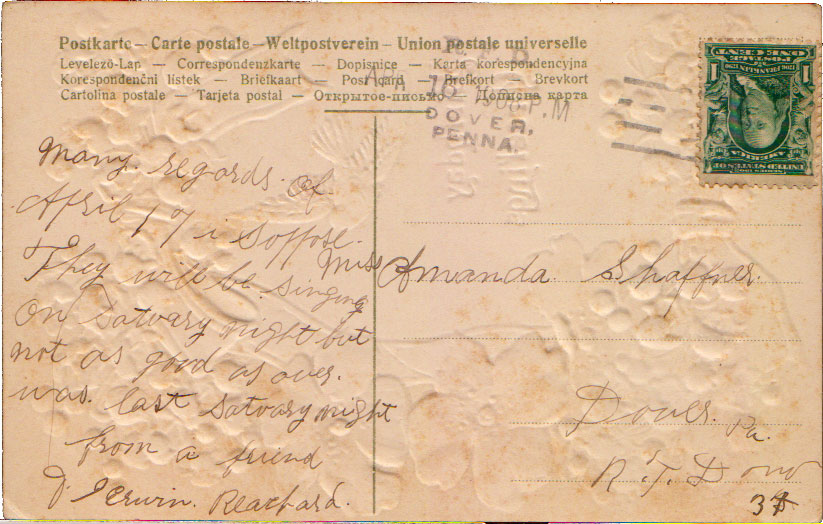 Postkarte – Carte postale – Weltpostverein – Union postale universelle
Levelező-Lap — Correspondenzkarte — Dopisnice — Karta korespondencyjna
Korespondenční listek — Briefkaart — Post card — Brefkort — Brevkort
Cartolina postale — Tarjeta postal — Открытое-письмо — Дописна карта
DOVER,
PENNA.
P.M
ONE CENT
1 1
many regards of
April 17 i soppose.
They will be singing
on Satvary night but
not as good as over.
was last satvary night
from a friend
Reachard.
Miss Amanda Shaffner.
Dover. Pa.
37